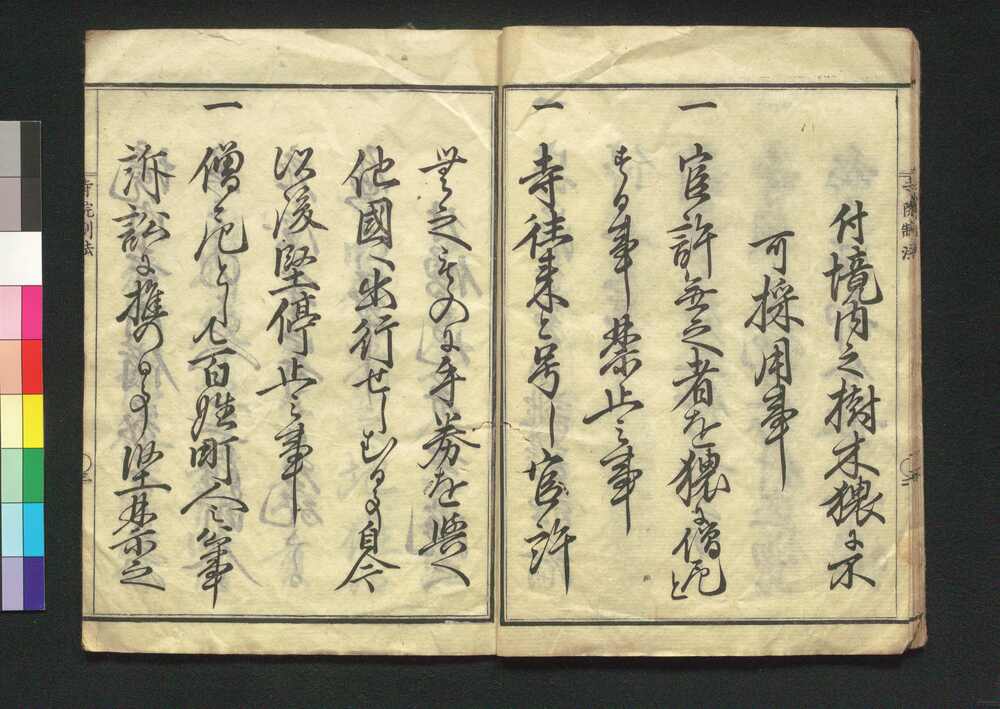 付境内之樹木猥ニ不
可採用事
一 官許無之者を猥ニ僧尼と
する事禁止之事
一 寺往来と号し官許
無之ものニ手券を与へ
他國へ出行せしむる事自今
以後堅停止之事
一 僧尼として百姓町人公事
訴訟ニ携りの事堅禁之
寺院制法
寺院制法